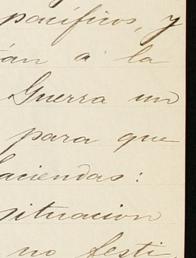 pacíficos, y
án á la
Guerra un
para que
aciendas:
situacion
no festi